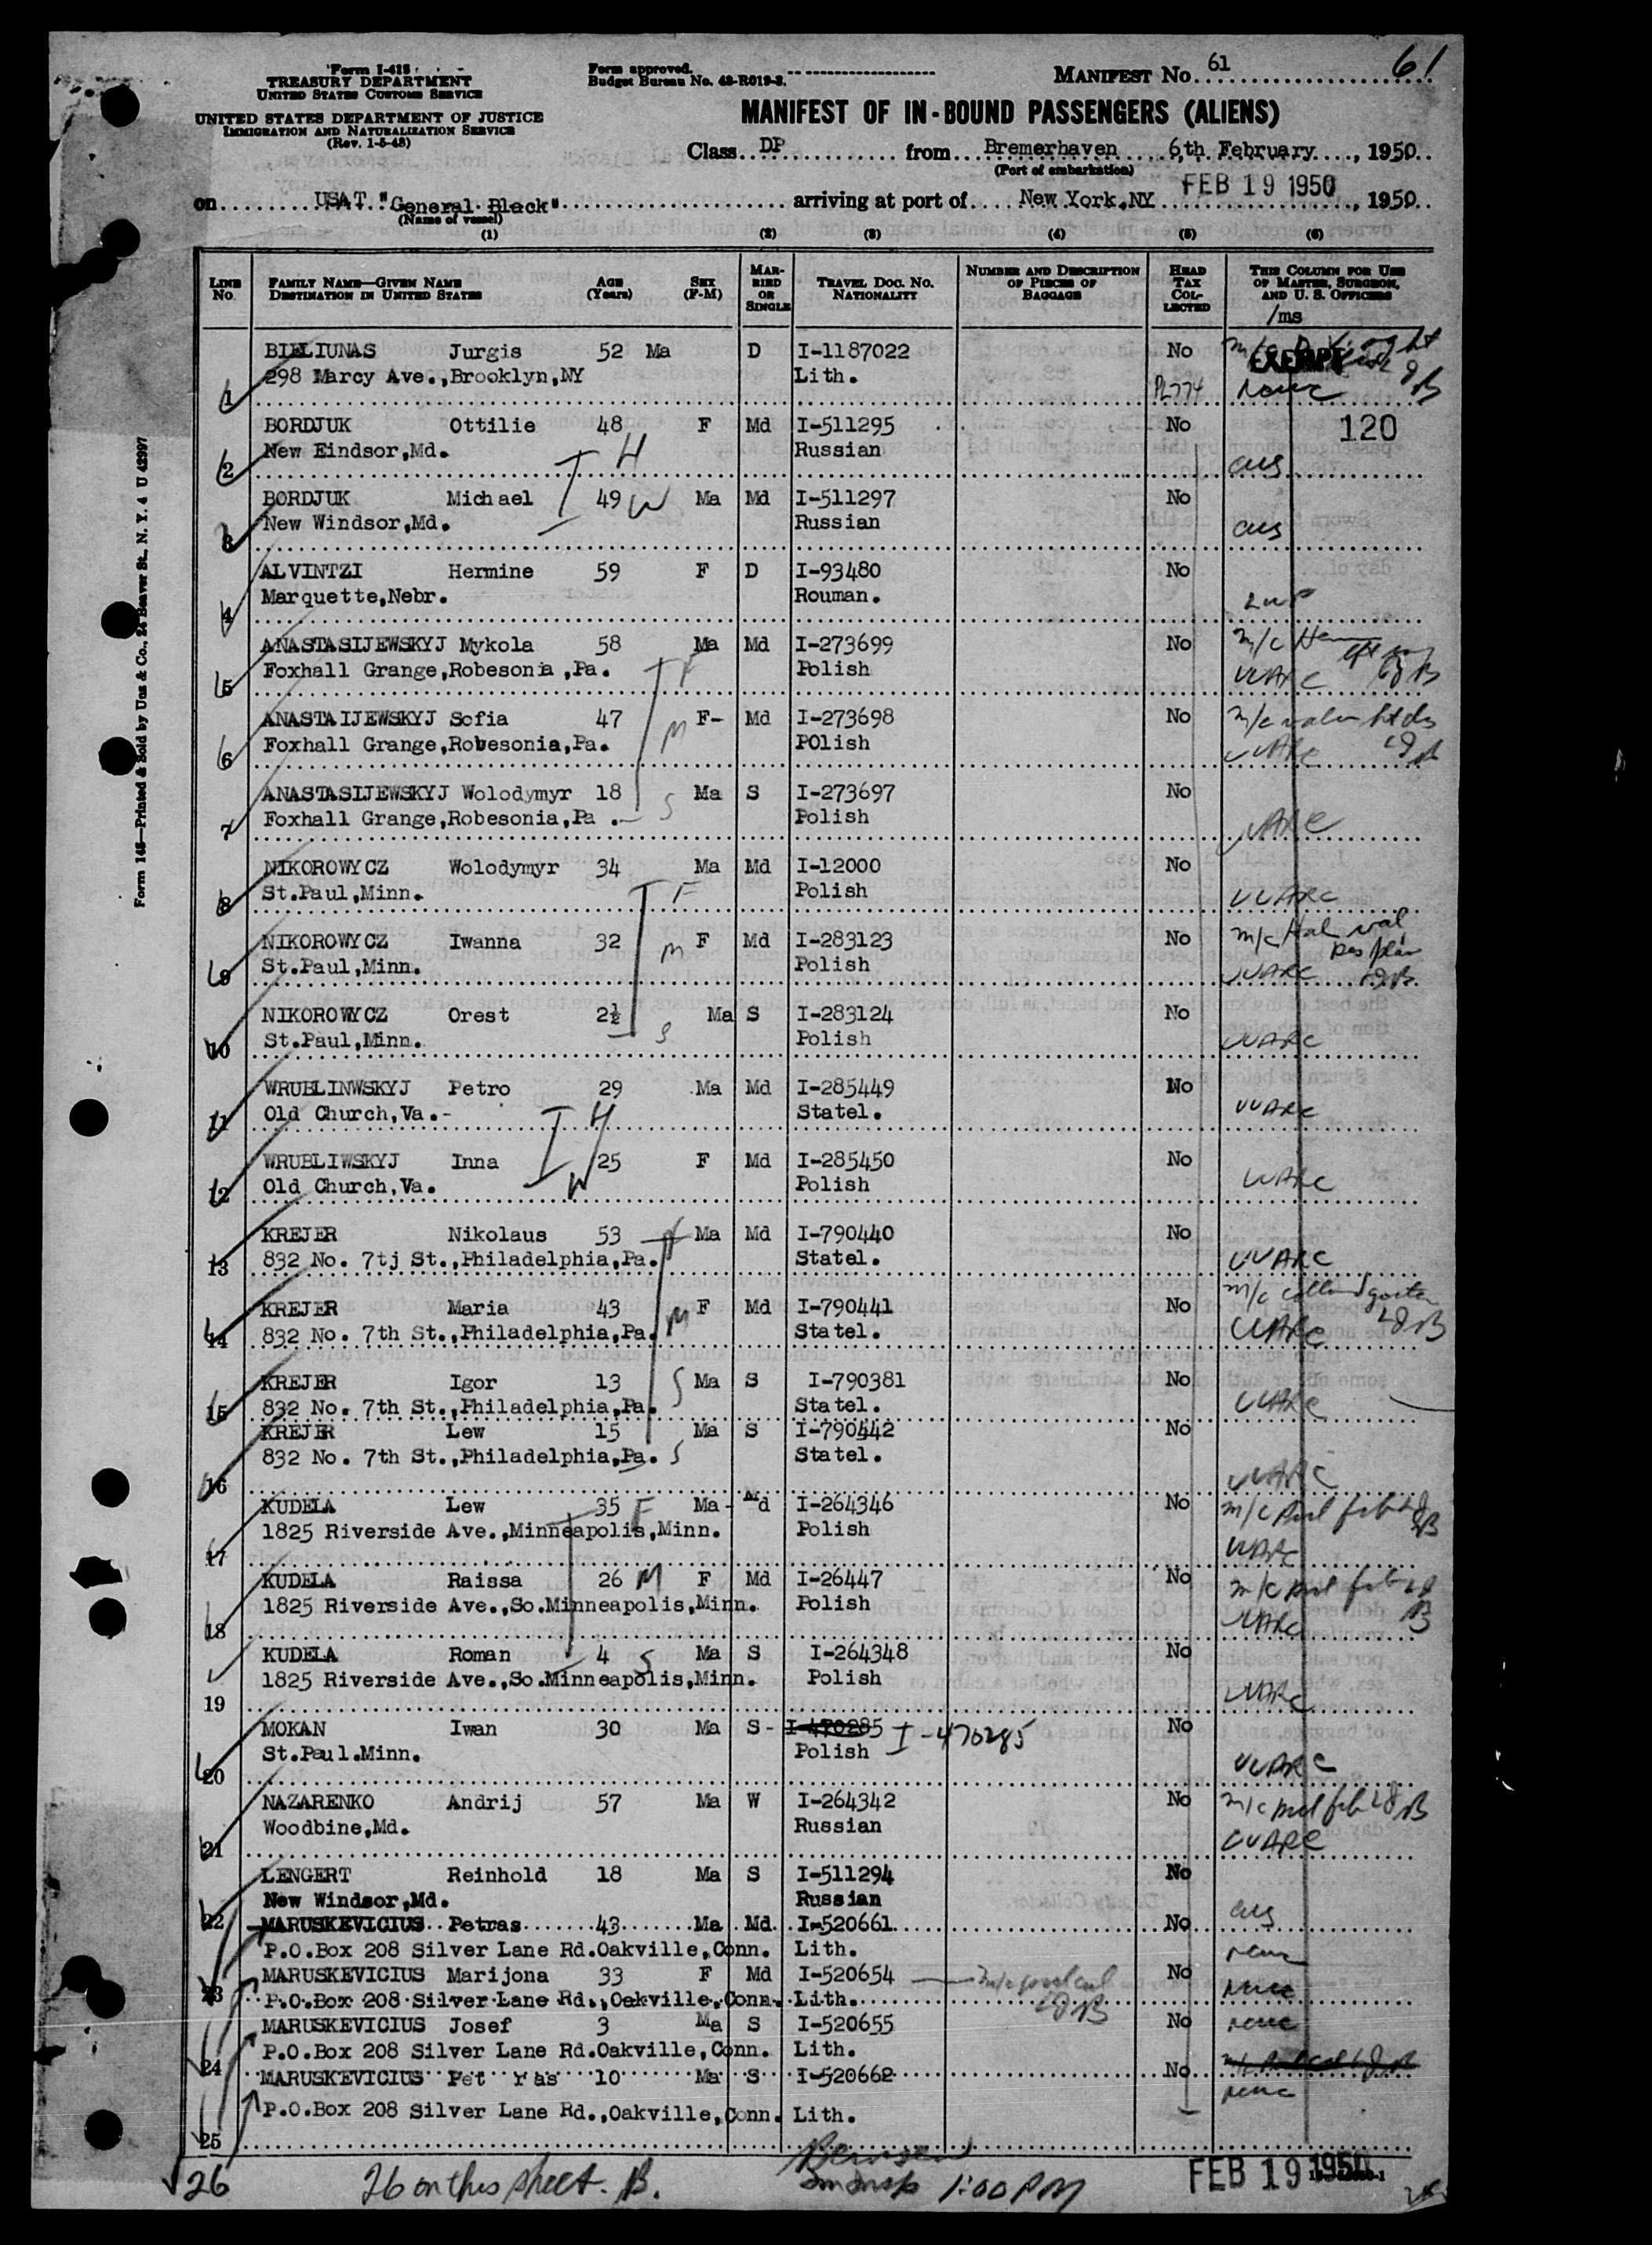 Form I-415
TREASURY DEPARTMENT
UNITED STATES CUSTOMS SERVICE
UNITED STATES DEPARTMENT OF JUSTICE
IMMIGRATION AND NATURALIZATION SERVICE
(Rev. 1-5-48)
Form approved.
Budget Bureau No. 43-R019-3.
MANIFEST No. 61 61
MANIFEST OF IN-BOUND PASSENGERS (ALIENS)
Class DP from Bremerhaven 6,th February, 1950
(Port of embarkation)
on USAT "General Black" arriving at port of New York,NY FEB 19 1950, 1950
(Name of vessel)
(1) (2) (3) (4) (5) (6)
LINE No. FAMILY NAME—GIVEN NAME DESTINATION IN UNITED STATES AGE (Years) SEX (F-M) MARRIED OR SINGLE TRAVEL DOC. No. NATIONALITY NUMBER AND DESCRIPTION OF PIECES OF BAGGAGE HEAD TAX COLLECTED THIS COLUMN FOR USE OF MASTER, SURGEON, AND U. S. OFFICERS
/ms
BIELIUNAS Jurgis 52 Ma D I-1187022 No EXEMPT
1 298 Marcy Ave.,Brooklyn,NY Lith. PL774
BORDJUK Ottilie 48 F Md I-511295 No 120
2 New Eindsor,Md. H Russian cws
BORDJUK Michael 49 W Ma Md I-511297 No
3 New Windsor,Md. Russian cws
ALVINTZI Hermine 59 F D I-93480 No
4 Marquette,Nebr. Rouman. LWF
ANASTASIJEWSKYJ Mykola 58 Ma Md I-273699 No
5 Foxhall Grange,Robesonia ,Pa. F Polish UUARC
ANASTAIJEWSKYJ Sofia 47 F- Md I-273698 No
6 Foxhall Grange,Robesonia,Pa. M POlish UUARC
ANASTASIJEWSKYJ Wolodymyr 18 Ma S I-273697 No
7 Foxhall Grange,Robesonia,Pa .- S Polish UUARC
NIKOROWYCZ Wolodymyr 34 Ma Md I-12000 No
8 St.Paul,Minn. F Polish UUARC
NIKOROWYCZ Iwanna 32 M F Md I-283123 No
9 St.Paul,Minn. Polish UUARC
NIKOROWYCZ Orest 2½ Ma S I-283124 No
10 St.Paul,Minn. S Polish UUARC
WRUBLINWSKYJ Petro 29 Ma Md I-285449 No
11 Old Church,Va.- H Statel. UUARC
WRUBLIWSKYJ Inna 25 F Md I-285450 No
12 Old Church,Va. W Polish UUARC
KREJER Nikolaus 53 Ma Md I-790440 No
13 832 No. 7tj St.,Philadelphia,Pa. Statel. UUARC
KREJER Maria 43 F Md I-790441 No
14 832 No. 7th St.,Philadelphia,Pa. M Statel. UUARC
KREJER Igor 13 S Ma S I-790381 No
15 832 No. 7th St.,Philadelphia,Pa. Statel. UUARC
KREJER Lew 15 Ma S I-790442 No
832 No. 7th St.,Philadelphia,Pa. S Statel.
16 UUARC
KUDELA Lew 35 F Ma- Md I-264346 No
1825 Riverside Ave.,Minneapolis,Minn. Polish
17 UUARC
KUDELA Raissa 26 M F Md I-26447 No
1825 Riverside Ave.,So.Minneapolis,Minn. Polish
18 UUARC
KUDELA Roman 4 S Ma S I-264348 No
1825 Riverside Ave.,So.Minneapolis,Minn. Polish
19 UUARC
MOKAN Iwan 30 Ma S- I-470285 I-470285 No
St.Paul.Minn. Polish
20 UUARC
NAZARENKO Andrij 57 Ma W I-264342 No
Woodbine,Md. Russian
21 UUARC
LENGERT Reinhold 18 Ma S I-511294 No
New Windsor,Md. Russian
22 MARUSKEVICIUS Petras 43 Ma Md I-520661 No cws
P.O.Box 208 Silver Lane Rd.Oakville,Conn. Lith.
MARUSKEVICIUS Marijona 33 F Md I-520654 No
23 P.O.Box 208 Silver Lane Rd.,Oakville,Conn. Lith.
MARUSKEVICIUS Josef 3 Ma S I-520655 No
P.O.Box 208 Silver Lane Rd.Oakville,Conn. Lith.
24 MARUSKEVICIUS Pet ras 10 Ma S I-520662 No
P.O.Box 208 Silver Lane Rd.,Oakville,Conn. Lith.
25
26 26 on this sheet. B. 1:00 PM FEB 19 1950
Form 145—Printed & Sold by Unz & Co., 24 Beaver St., N. Y. 4 U 42997